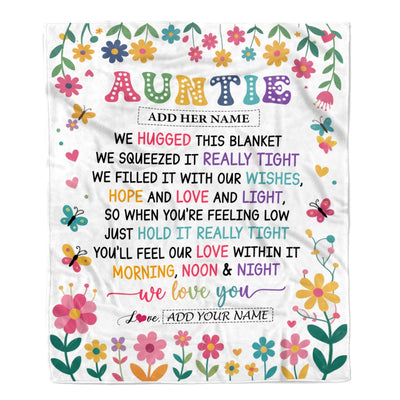 AUNTIE
ADD HER NAME
WE HUGGED THIS BLANKET
WE SQUEEZED IT REALLY TIGHT
WE FILLED IT WITH OUR WISHES,
HOPE AND LOVE AND LIGHT,
SO WHEN YOU'RE FEELING LOW
JUST HOLD IT REALLY TIGHT
YOU'LL FEEL OUR LOVE WITHIN IT
MORNING, NOON & NIGHT
we love you
Love, ADD YOUR NAME